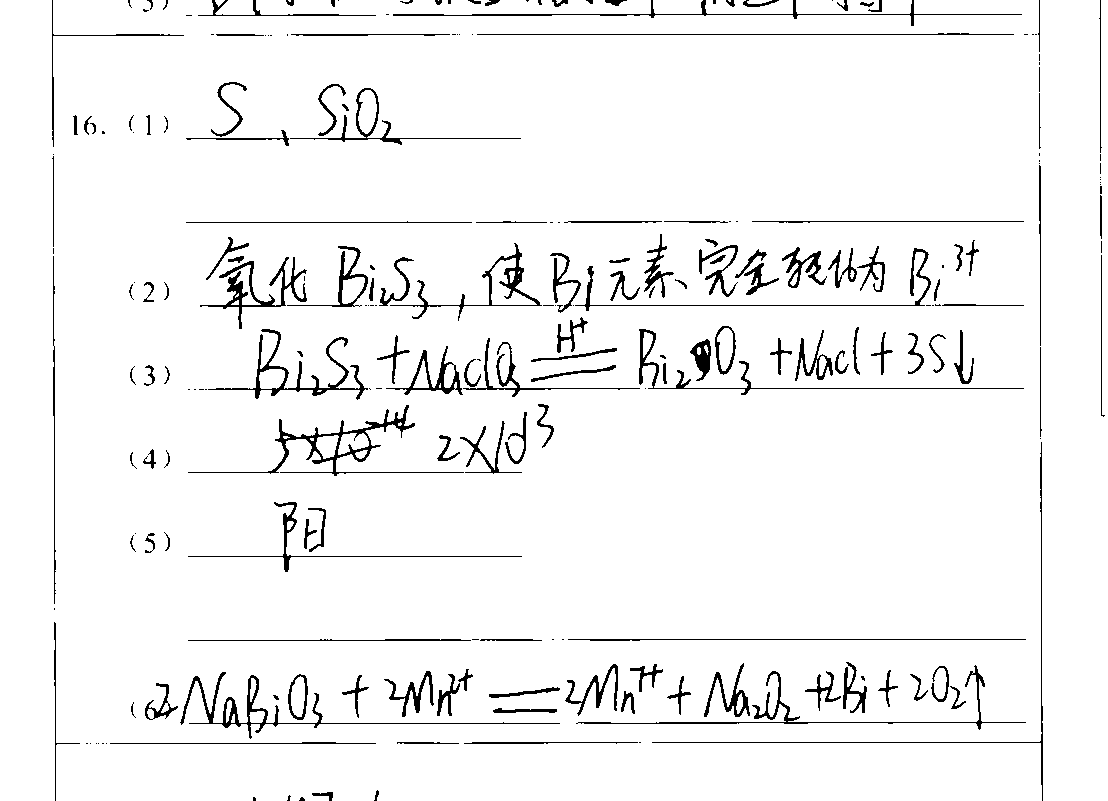 (5)
16. (1) S、SiO₂
(2) 氧化 Bi₂S₃, 使Bi元素完全转化为 Bi³⁺
(3) Bi₂S₃ + NaClO₃ ═(H⁺)═ Bi₂O₃ + NaCl + 3S↓
(4) 2×10³
(5) 阳
(6) 2NaBiO₃ + 2Mn²⁺ ═ 2Mn⁷⁺ + Na₂O₂ + 2Bi + 2O₂↑